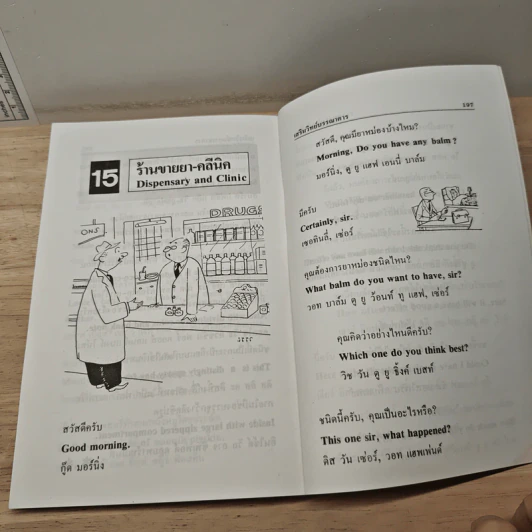 15
ร้านขายยา-คลีนิค
Dispensary and Clinic
DRUGS
สวัสดีครับ
Good morning.
กู๊ด มอร์นิ่ง
เสริมวิทย์บรรณาคาร
สวัสดี, คุณมียาหม่องบ้างไหม?
Morning, Do you have any balm?
มอร์นิ่ง, ดู ยู แฮฟ เอนนี่ บาล์ม
มีครับ
Certainly, sir.
เซอทินลี่, เซ่อร์
คุณต้องการยาหม่องชนิดไหน?
What balm do you want to have, sir?
วอท บาล์ม ดู ยู ว้อนท์ ทู แฮฟ, เซ่อร์
คุณคิดว่าอย่างไหนดีครับ?
Which one do you think best?
วิช วัน ดู ยู ธิ้งค์ เบสท์
ชนิดนี้ครับ, คุณเป็นอะไรหรือ?
This one sir, what happened?
ดิส วัน เซ่อร์, วอท แฮพเพ่นด์